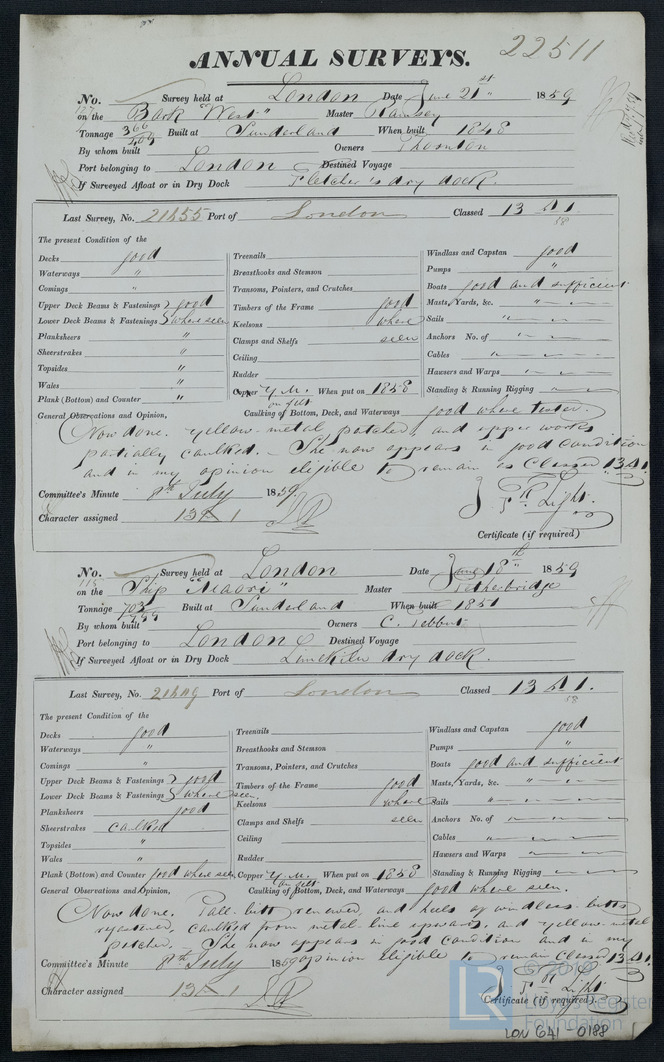 22511
ANNUAL SURVEYS.
No. Survey held at London Date June 21st 1859
on the Bark "West" Master Ramsey
Tonnage 366 Built at Sunderland When built 1848
By whom built Owners Thornton
Port belonging to London Destined Voyage
If Surveyed Afloat or in Dry Dock Fletcher's dry dock.
Last Survey, No. 21455 Port of London Classed 13 A 1.
58
The present Condition of the
Decks good Treenails Windlass and Capstan good
Waterways " Breasthooks and Stemson Pumps "
Comings " Transoms, Pointers, and Crutches Boats good and sufficient
Upper Deck Beams & Fastenings good Timbers of the Frame good Masts, Yards, &c. "
Lower Deck Beams & Fastenings where seen Keelsons where Sails "
Planksheers " Clamps and Shelfs seen Anchors No. of "
Sheerstrakes " Ceiling Cables "
Topsides " Rudder Hawsers and Warps "
Wales " Copper Y.M. on felt When put on 1858 Standing & Running Rigging
Plank (Bottom) and Counter "
General Observations and Opinion, Caulking of Bottom, Deck, and Waterways good where tested.
Now done. Yellow metal patched, and upper works
partially caulked. – She now appears in good condition
and in my opinion eligible to remain as Classed 13 A 1.
Committee's Minute 8th July 1859
Character assigned 13 A 1
Light.
Certificate (if required)
No. Survey held at London Date June 18th 1859
on the Ship "Maori" Master Petherbridge
Tonnage 703 Built at Sunderland When built 1851
By whom built Owners C. Tebbut
Port belonging to London Destined Voyage
If Surveyed Afloat or in Dry Dock Limekiln dry dock.
Last Survey, No. 21449 Port of London Classed 13 A 1.
58
The present Condition of the
Decks good Treenails Windlass and Capstan good
Waterways " Breasthooks and Stemson Pumps "
Comings " Transoms, Pointers, and Crutches Boats good and sufficient
Upper Deck Beams & Fastenings good Timbers of the Frame good Masts, Yards, &c. "
Lower Deck Beams & Fastenings where seen. Keelsons where Sails
Planksheers good Clamps and Shelfs seen Anchors No. of
Sheerstrakes caulked Ceiling Cables "
Topsides " Rudder Hawsers and Warps
Wales " Copper Y.M. on felt When put on 1858 Standing & Running Rigging
Plank (Bottom) and Counter good where seen
General Observations and Opinion, Caulking of Bottom, Deck, and Waterways good where seen.
Now done. Pall bitt renewed, and heels of windlass bitts
refastened, caulked from metal line upwards, and yellow metal
patched. She now appears in good condition and in my
opinion eligible to remain Classed 13 A 1.
Committee's Minute 8th July 1859
Character assigned 13 A 1
Light
Certificate (if required).
LR © 2019
Lloyd's Register
Foundation
LON 641 - 0188